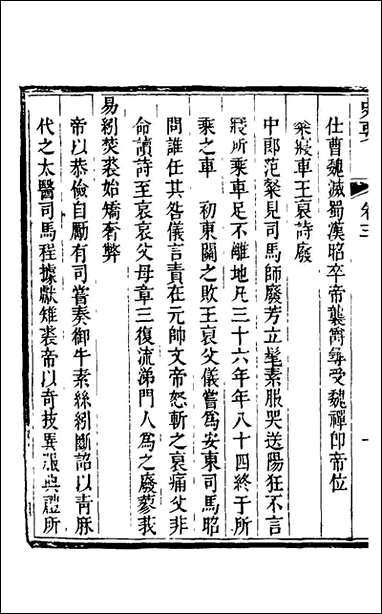 卷三
仕曹魏滅蜀漢昭卒帝襲爵尋受魏禪卽帝位
粲寢車王裒詩廢
中郎范粲見司馬師廢芳立髦素服哭送陽狂不言
寢所乘車足不離地凡三十六年年八十四終于所
乘之車　初東關之敗王裒父儀嘗爲安東司馬昭
問誰任其咎儀言責在元帥文帝怒斬之裒痛父非
命讀詩至哀哀父母章三復流涕門人爲之廢蓼莪
易紖焚裘始矯奢弊
帝以恭儉自勵有司嘗奏御牛素絲紖斷詔以青麻
代之太醫司馬程據獻雉裘帝以奇技異服典禮所